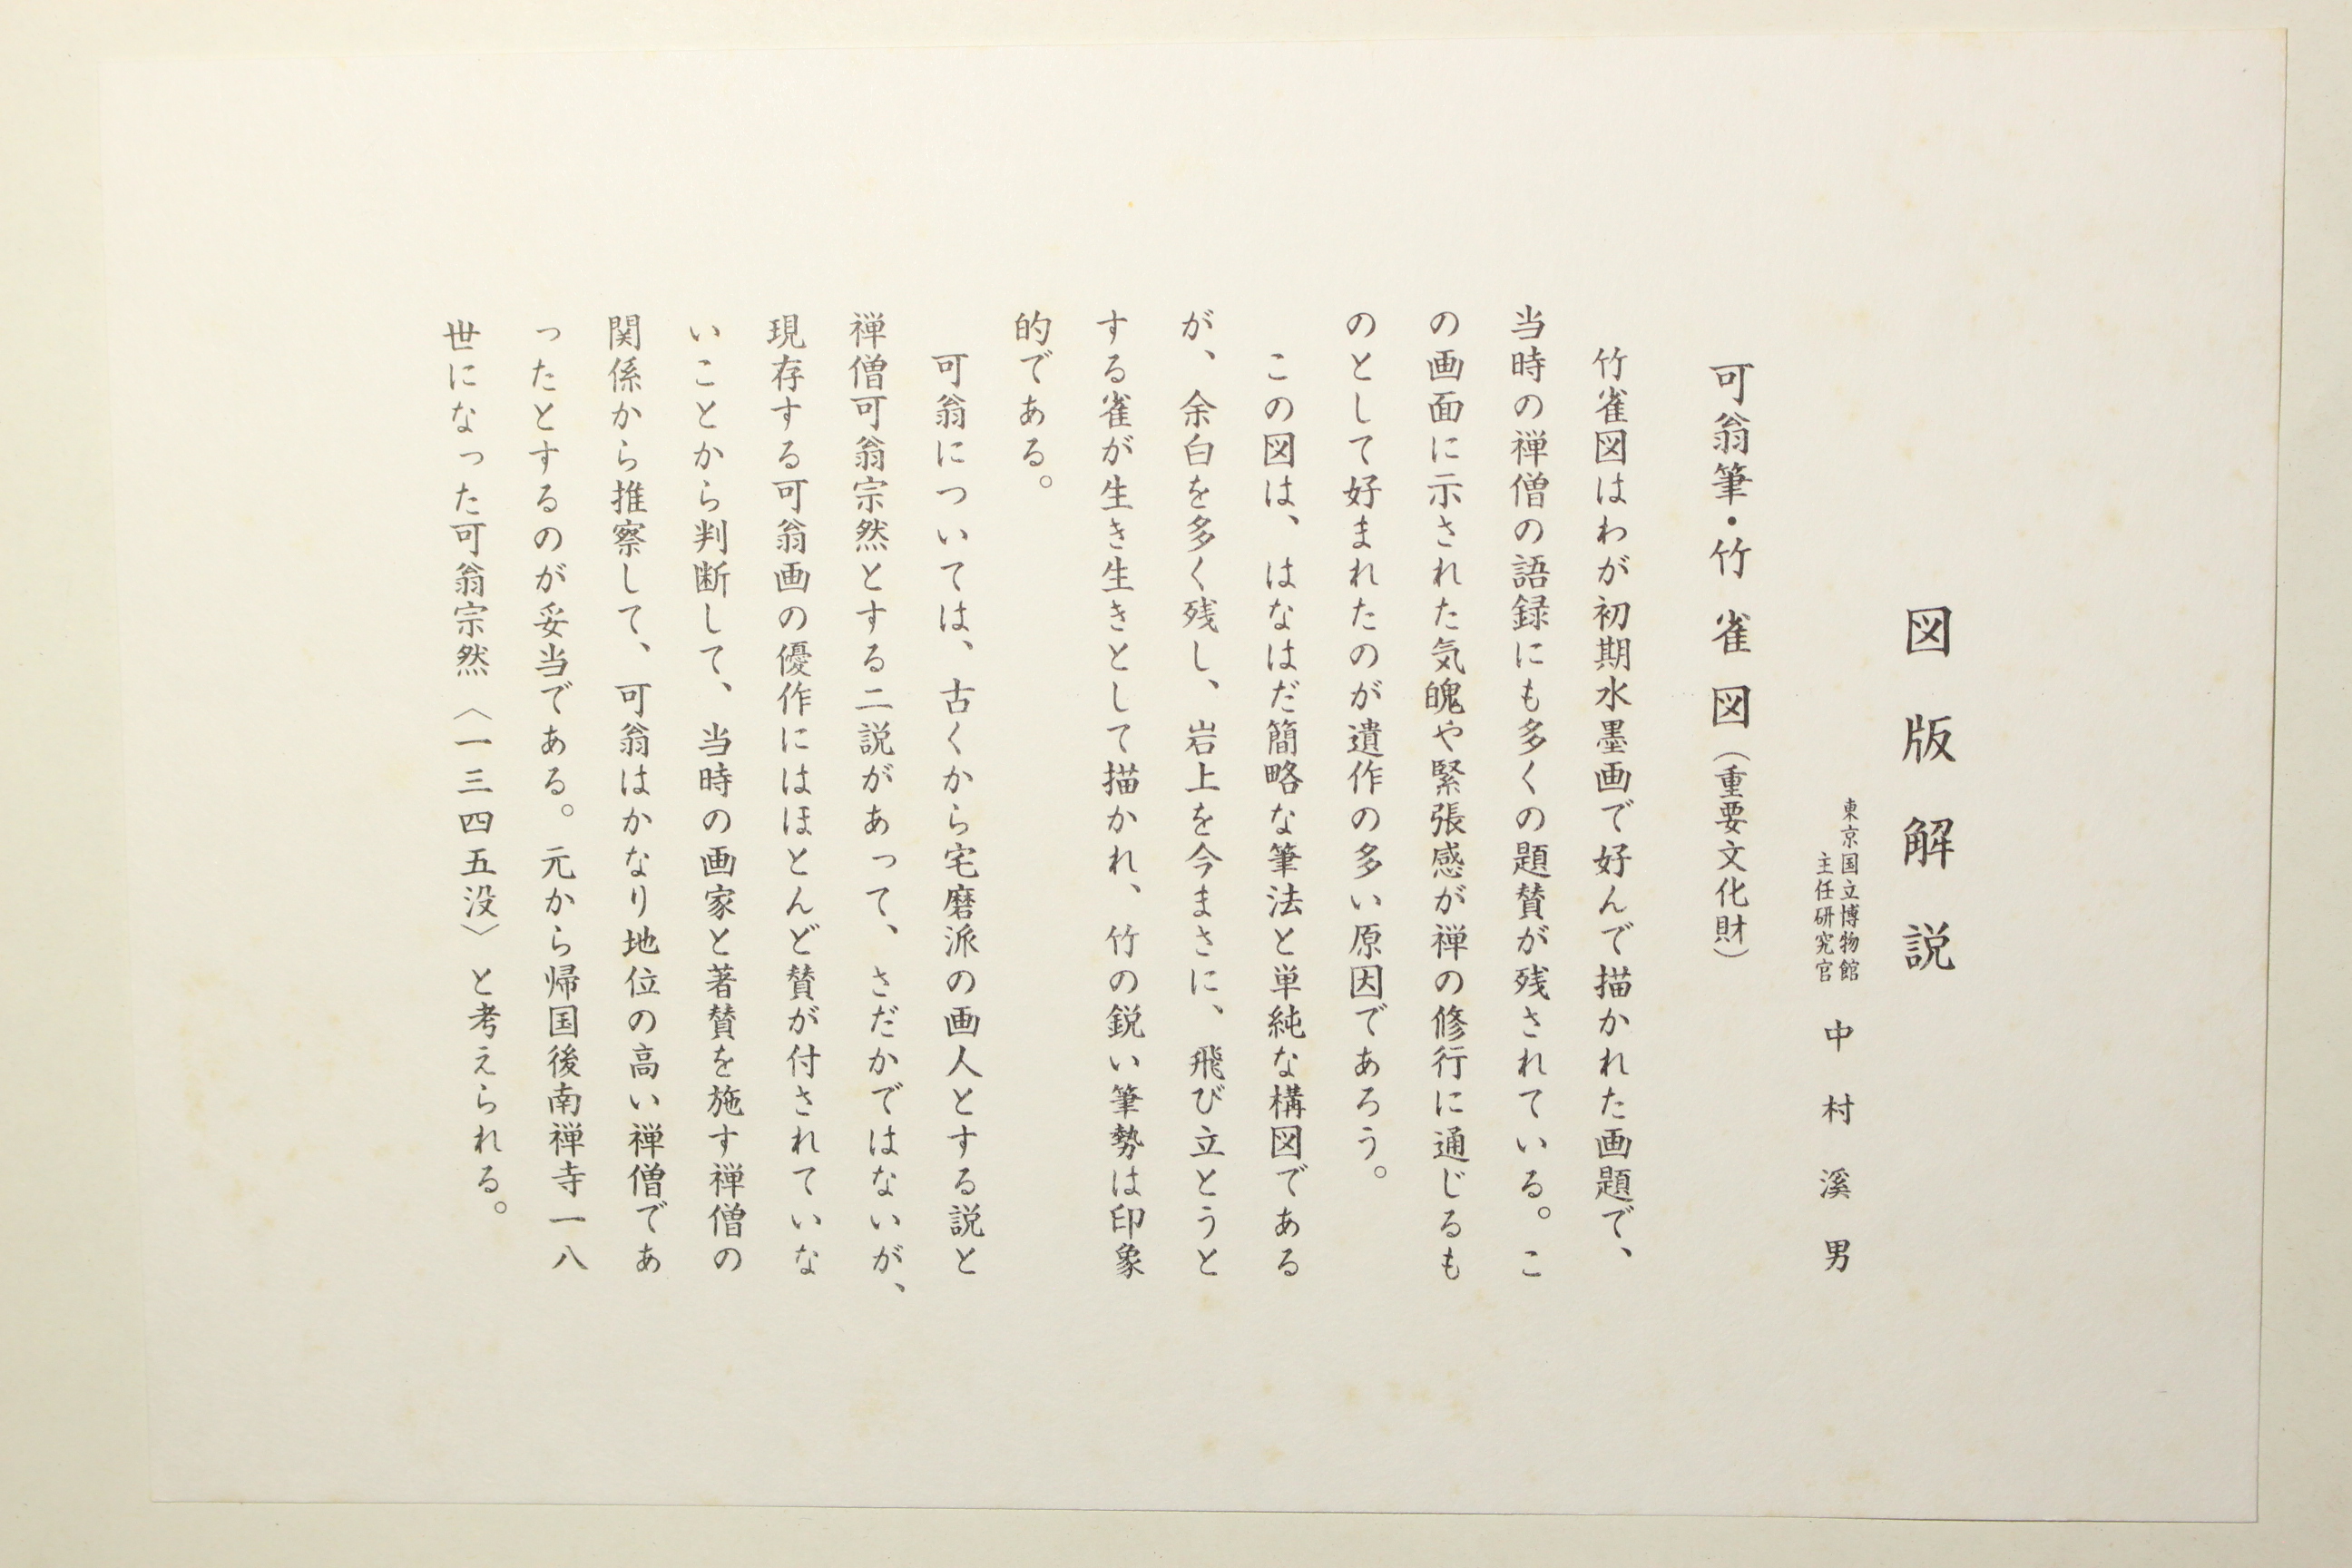 図版解説
東京国立博物館
主任研究官
中村溪男
可翁筆・竹雀図(重要文化財)
竹雀図はわが初期水墨画で好んで描かれた画題で、
当時の禅僧の語録にも多くの題賛が残されている。こ
の画面に示された気魄や緊張感が禅の修行に通じるも
のとして好まれたのが遺作の多い原因であろう。
この図は、はなはだ簡略な筆法と単純な構図である
が、余白を多く残し、岩上を今まさに、飛び立とうと
する雀が生き生きとして描かれ、竹の鋭い筆勢は印象
的である。
可翁については、古くから宅磨派の画人とする説と
禅僧可翁宗然とする二説があって、さだかではないが、
現存する可翁画の優作にはほとんど賛が付されていな
いことから判断して、当時の画家と著賛を施す禅僧の
関係から推察して、可翁はかなり地位の高い禅僧であ
ったとするのが妥当である。元から帰国後南禅寺一八
世になった可翁宗然〈一三四五没〉と考えられる。